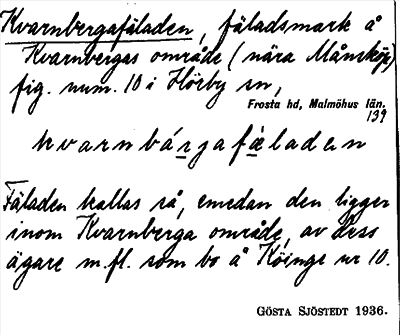 Kvarnbergafäladen, fäladsmark å
Kvarnbergas område (nära Månsköp)
fig. num. 10 i Hörby sn,
Frosta hd, Malmöhus län.
139
kvarnbárgafä̀laden
Fäladen kallas så, emedan den ligger
inom Kvarnberga område, av dess
ägare m.fl. som bo å Köinge nr 10.
GÖSTA SJÖSTEDT 1936.